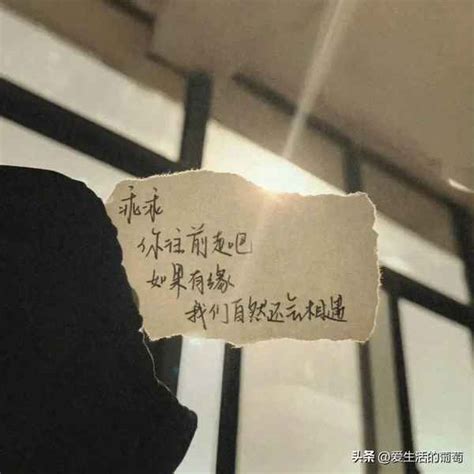 乖乖
你往前走吧
如果有缘
我们自然还会相遇
头条 @爱生活的葡萄